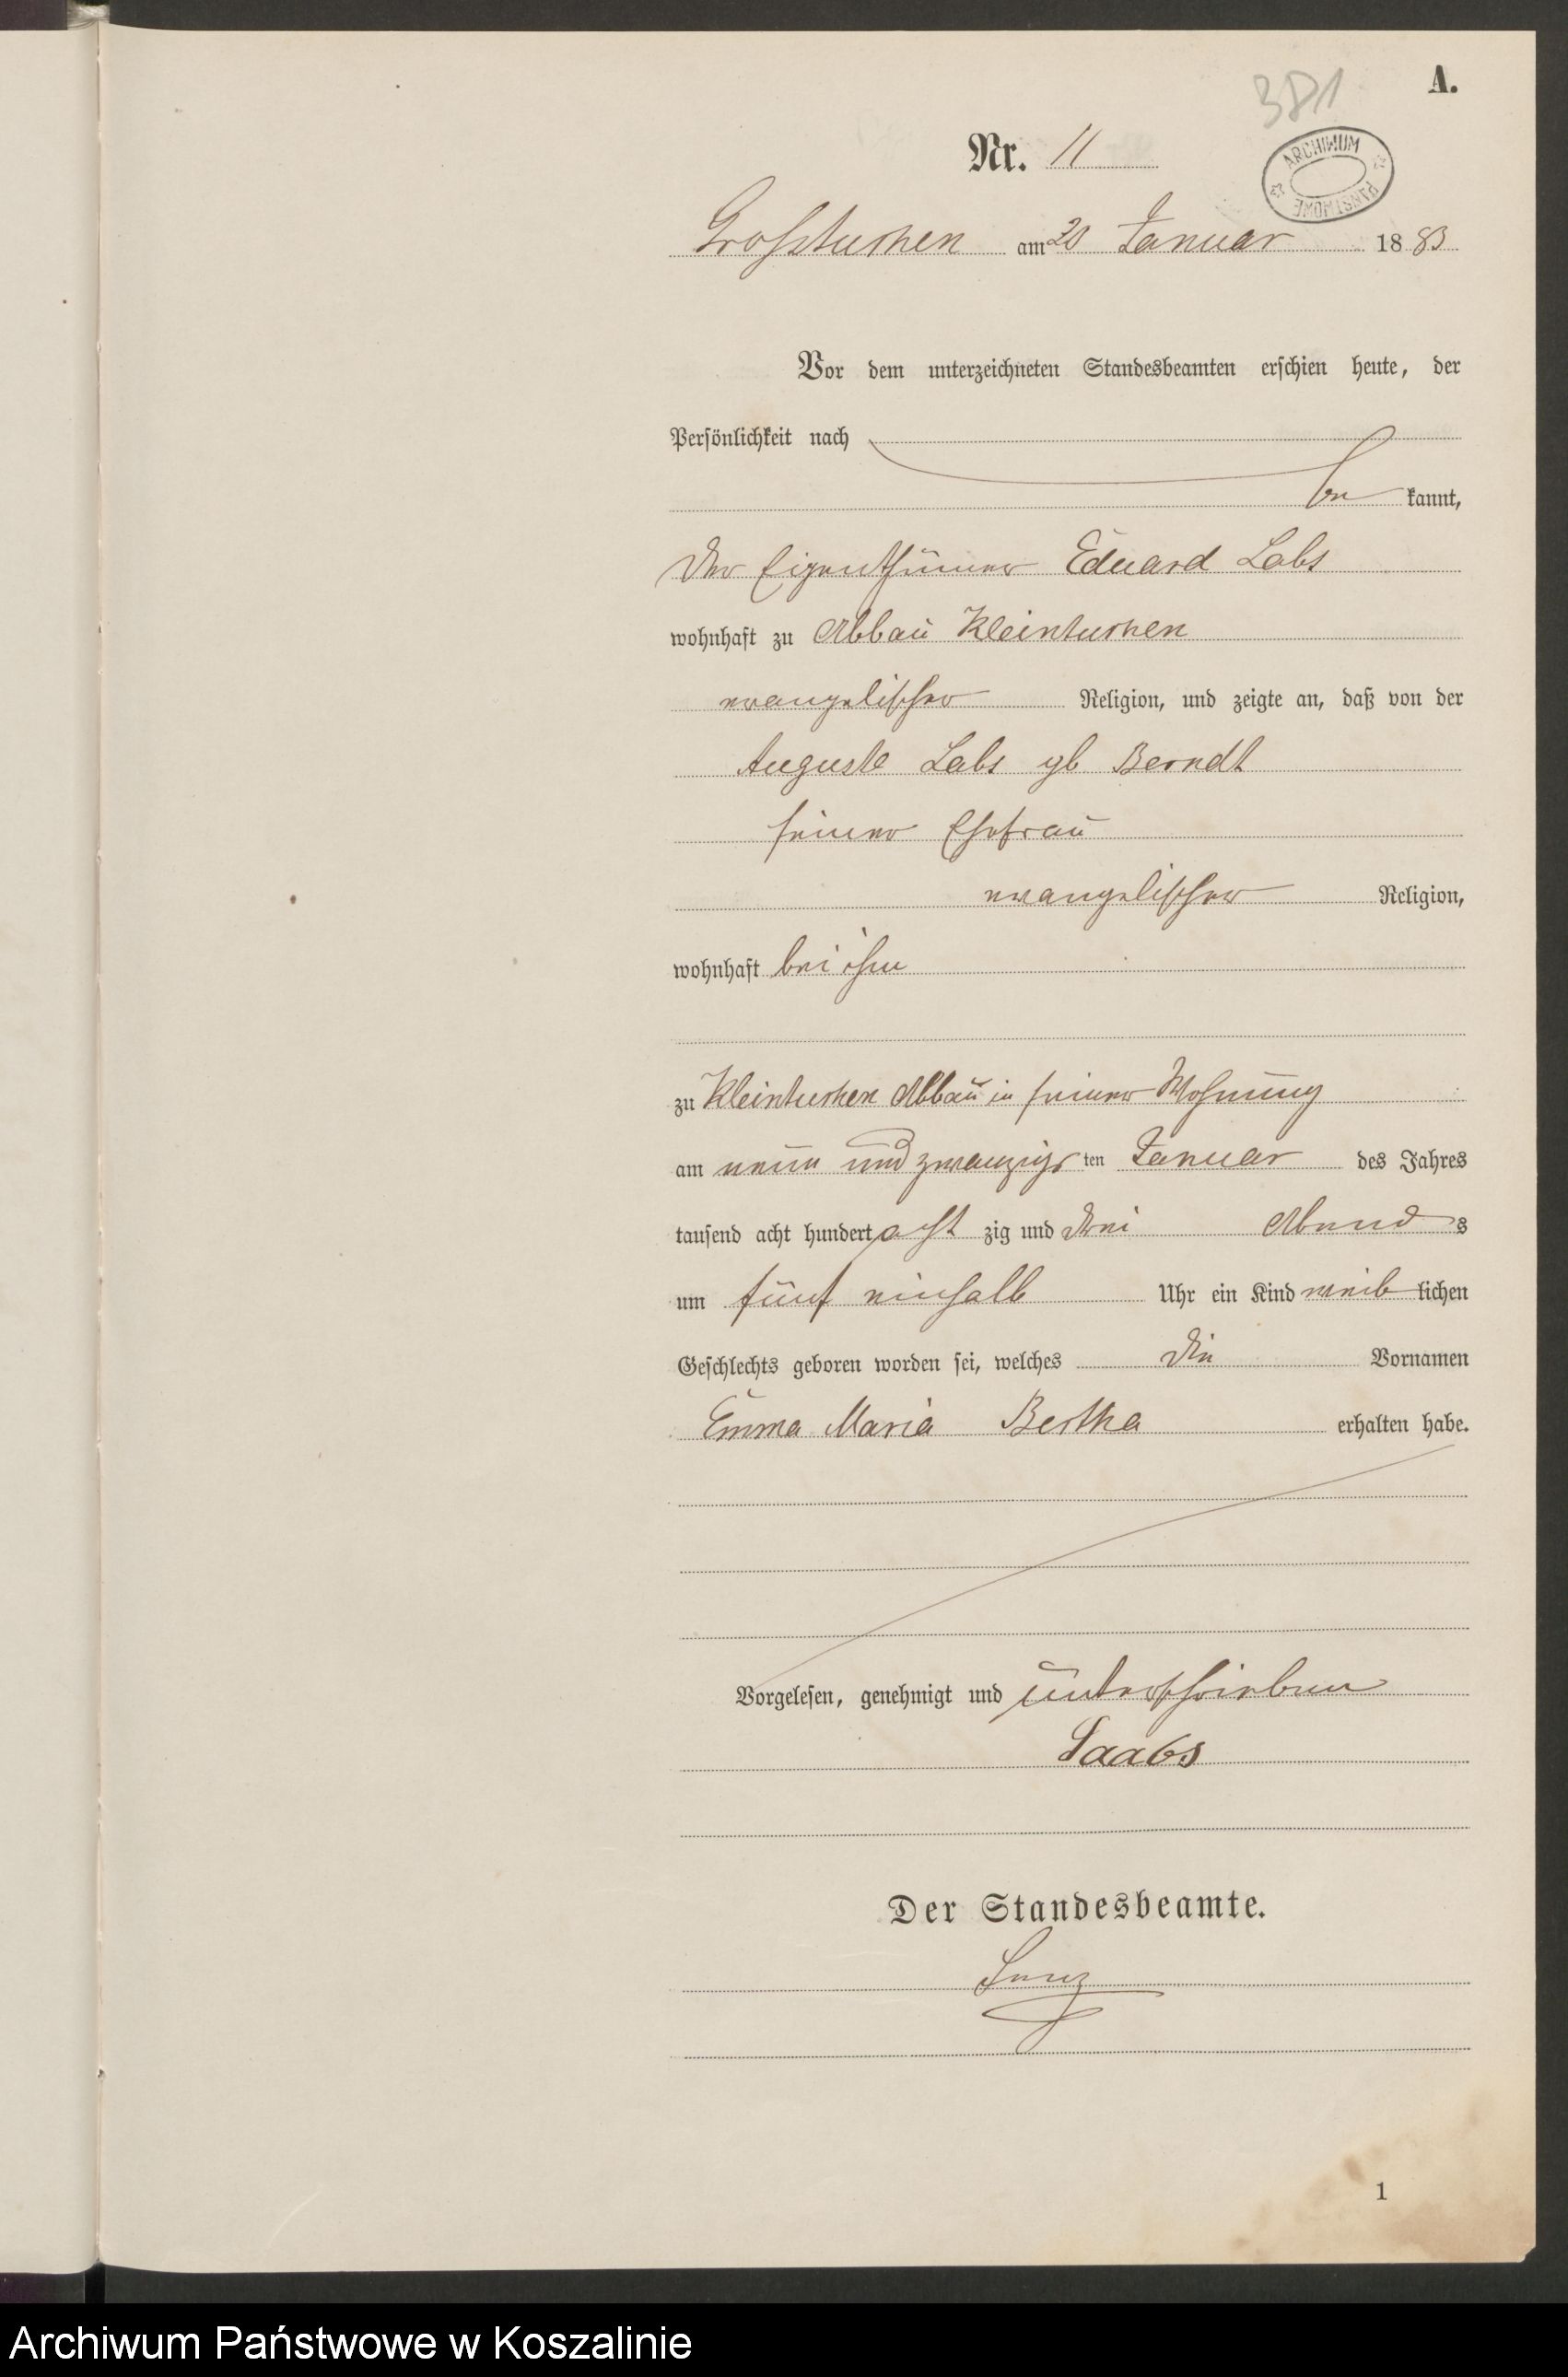 A.
381
Nr. 11
ARCHIWUM PAŃSTWOWE
Grosstuchen am 30 Januar 1883
Vor dem unterzeichneten Standesbeamten erschien heute, der
Persönlichkeit nach
be kannt,
der Eigenthümer Eduard Labs
wohnhaft zu Abbau Kleintuchen
evangelischer Religion, und zeigte an, daß von der
Auguste Labs gb Berndt
seiner Ehefrau
evangelischer Religion,
wohnhaft bei ihm
zu Kleintuchen Abbau in seiner Wohnung
am neun und zwanzigs ten Januar des Jahres
tausend acht hundert acht zig und drei Abend s
um fünf einhalb Uhr ein Kind weib lichen
Geschlechts geboren worden sei, welches die Vornamen
Emma Maria Bertha erhalten habe.
Vorgelesen, genehmigt und unterschrieben
Laabs
Der Standesbeamte.
1
Archiwum Państwowe w Koszalinie